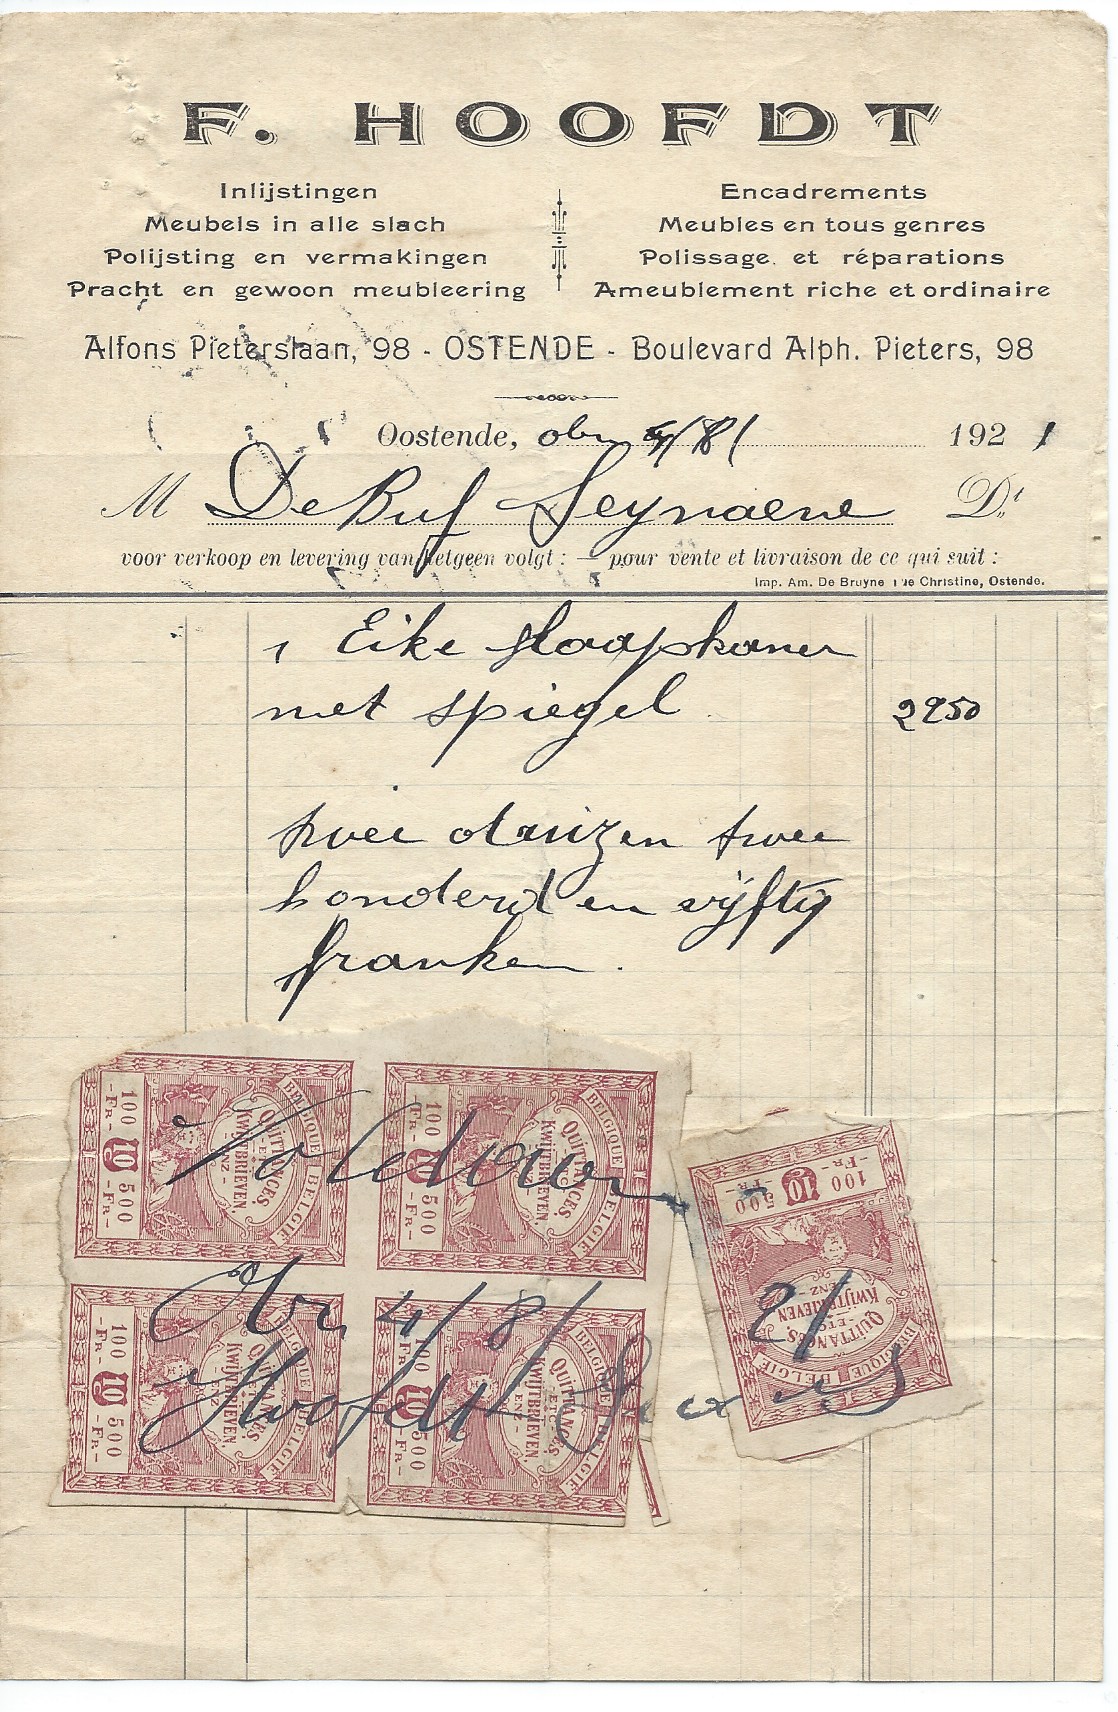 F. HOOFDT
Inlijstingen
Meubels in alle slach
Polijsting en vermakingen
Pracht en gewoon meubleering
Encadrements
Meubles en tous genres
Polissage et réparations
Ameublement riche et ordinaire
Alfons Pieterslaan, 98 - OSTENDE - Boulevard Alph. Pieters, 98
Oostende, 192 1
M De Ruf Seynaeve Dt
voor verkoop en levering van hetgeen volgt : — pour vente et livraison de ce qui suit :
Imp. Am. De Bruyne rue Christine, Ostende.
1 Eike slaapkamer
met spiegel 2250
twee duizen twee
honderd en vijftig
franken.
BELGIQUE BELGIE
QUITTANCES, ETC
KWIJTBRIEVEN, ENZ
100 10 500
FR FR
BELGIQUE BELGIE
QUITTANCES, ETC
KWIJTBRIEVEN, ENZ
100 10 500
FR FR
Voldaan
BELGIQUE BELGIE
QUITTANCES ETC
KWIJTBRIEVEN ENZ
100 10 500
FR FR
BELGIQUE BELGIE
QUITTANCES, ETC
KWIJTBRIEVEN, ENZ
100 10 500
FR FR
BELGIQUE BELGIE
QUITTANCES, ETC
KWIJTBRIEVEN, ENZ
100 10 500
FR FR
4/8/21
Hoofdt